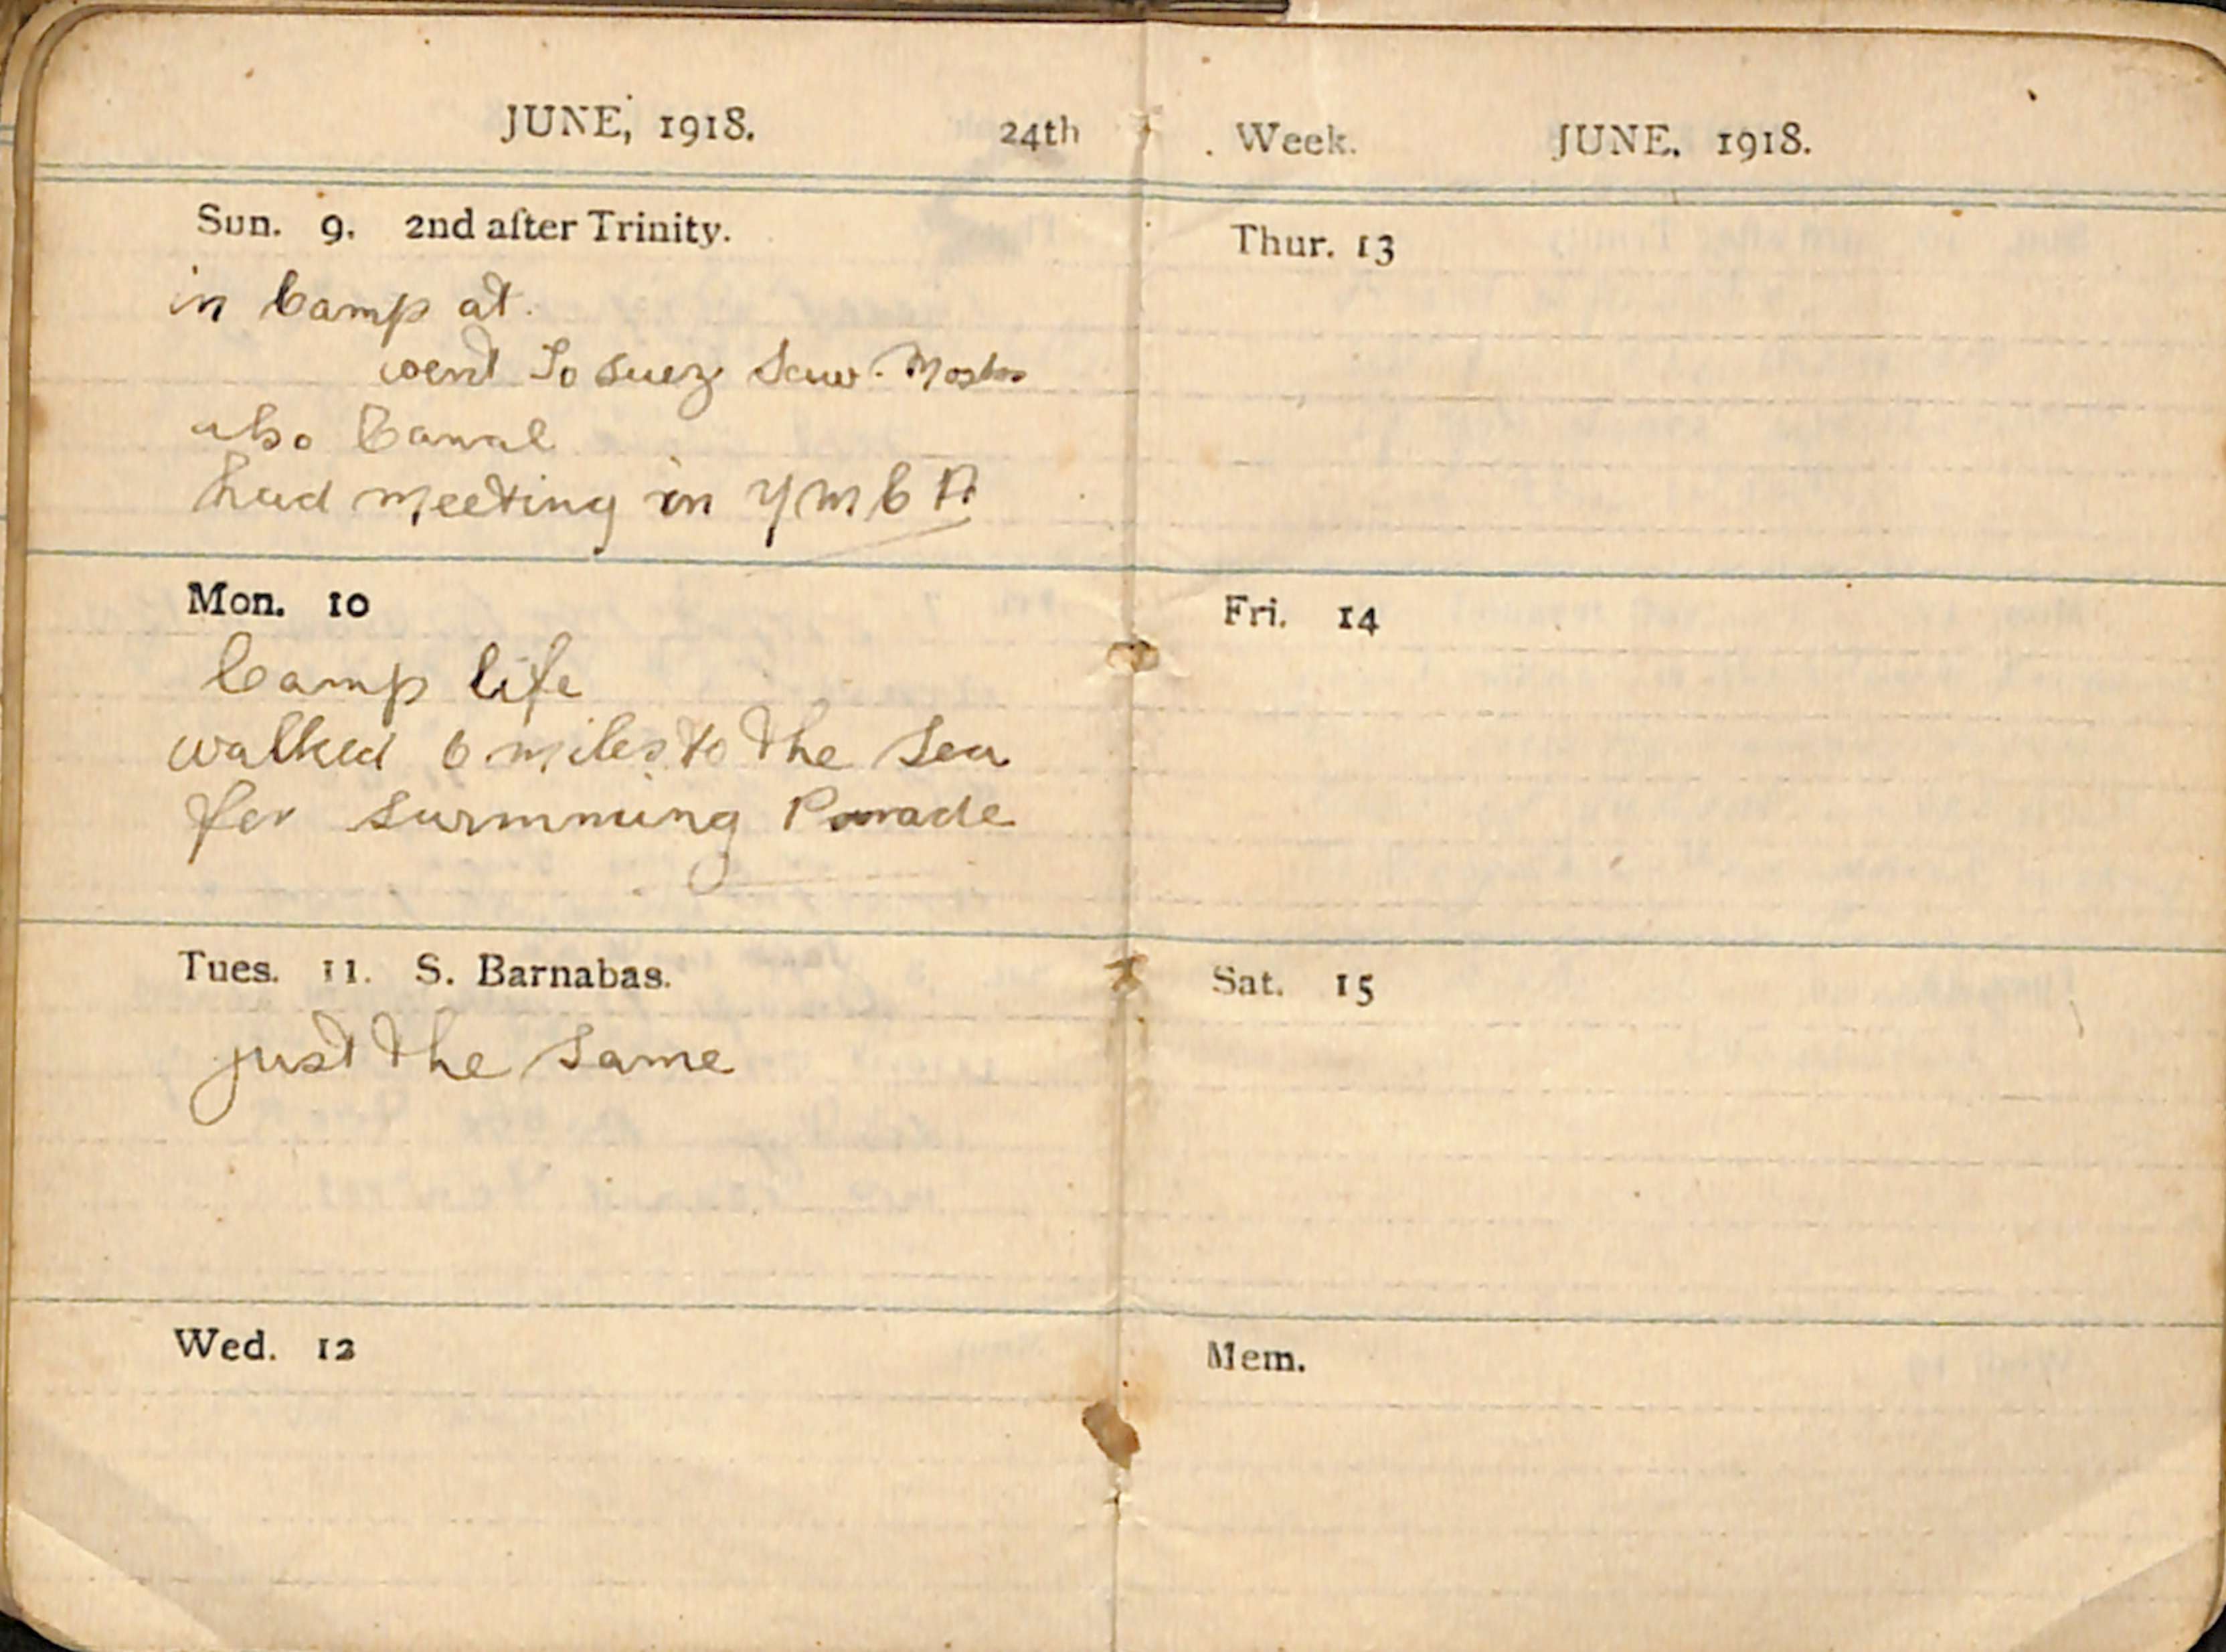 JUNE, 1918. 24th
Sun. 9. 2nd after Trinity.
in Camp at.
went To suez Saw.
also Canal
had meeting in YMCA
Mon. 10
Camp life
walked 6 miles to the Sea
for swimming Parade
Tues. 11. S. Barnabas.
just the same
Wed. 12
Week. JUNE. 1918.
Thur. 13
Fri. 14
Sat. 15
Mem.